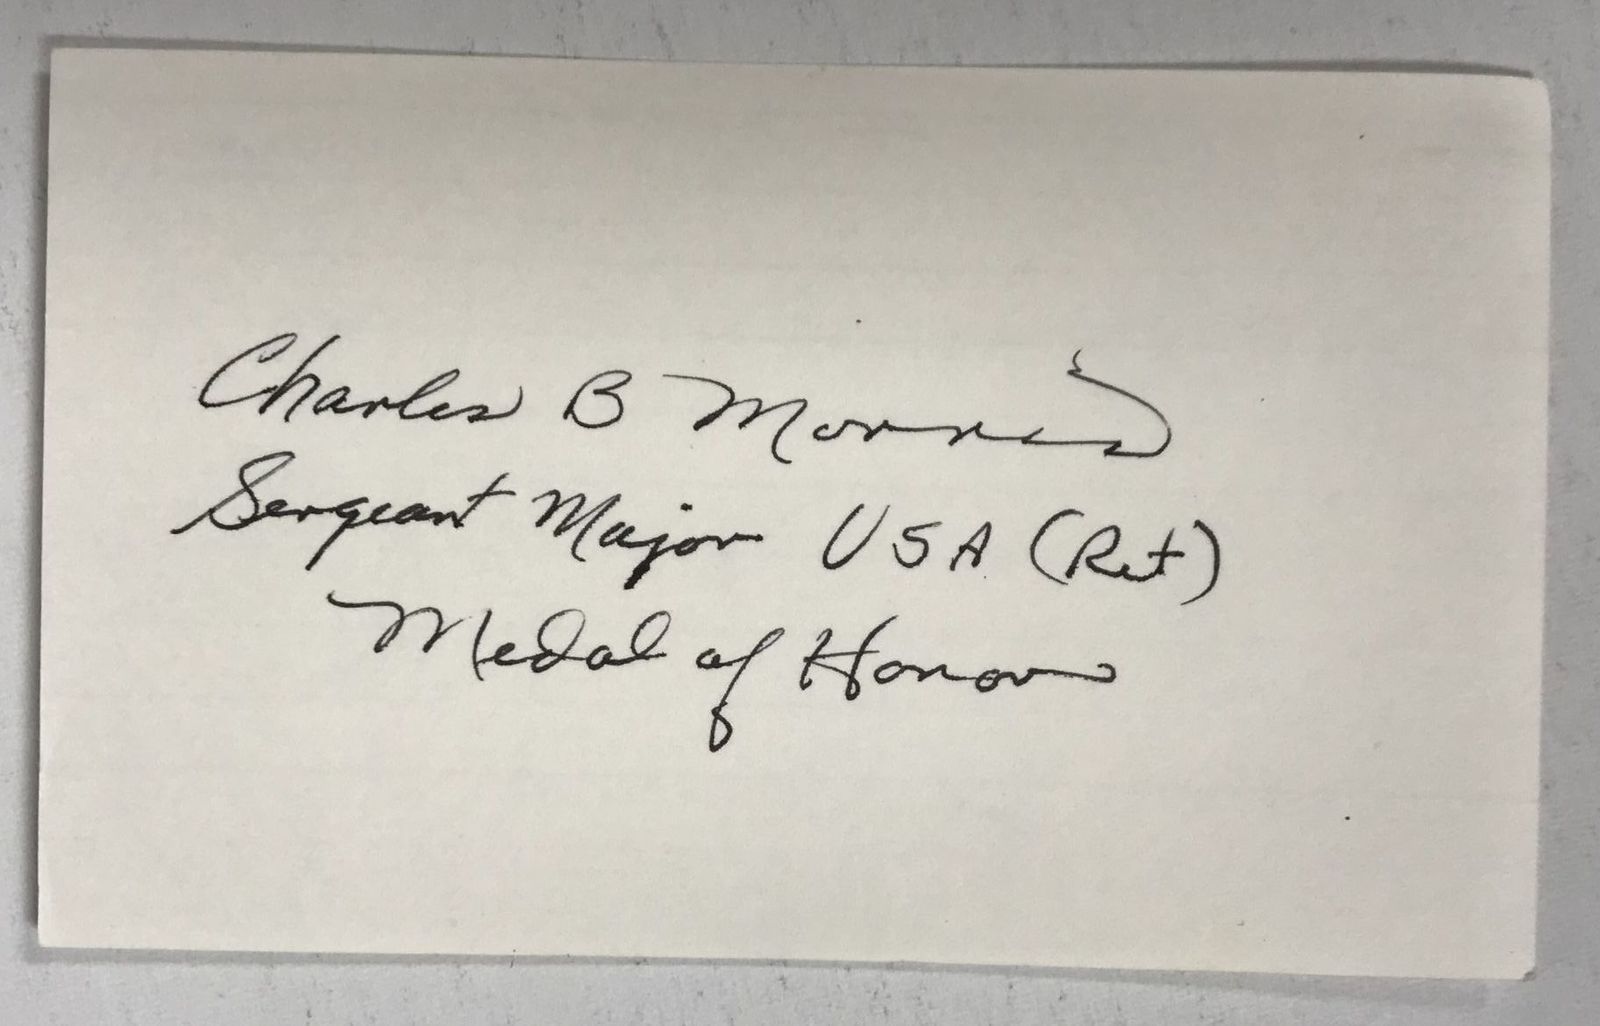 Charles B Morris
Sergeant Major USA (Ret)
Medal of Honor